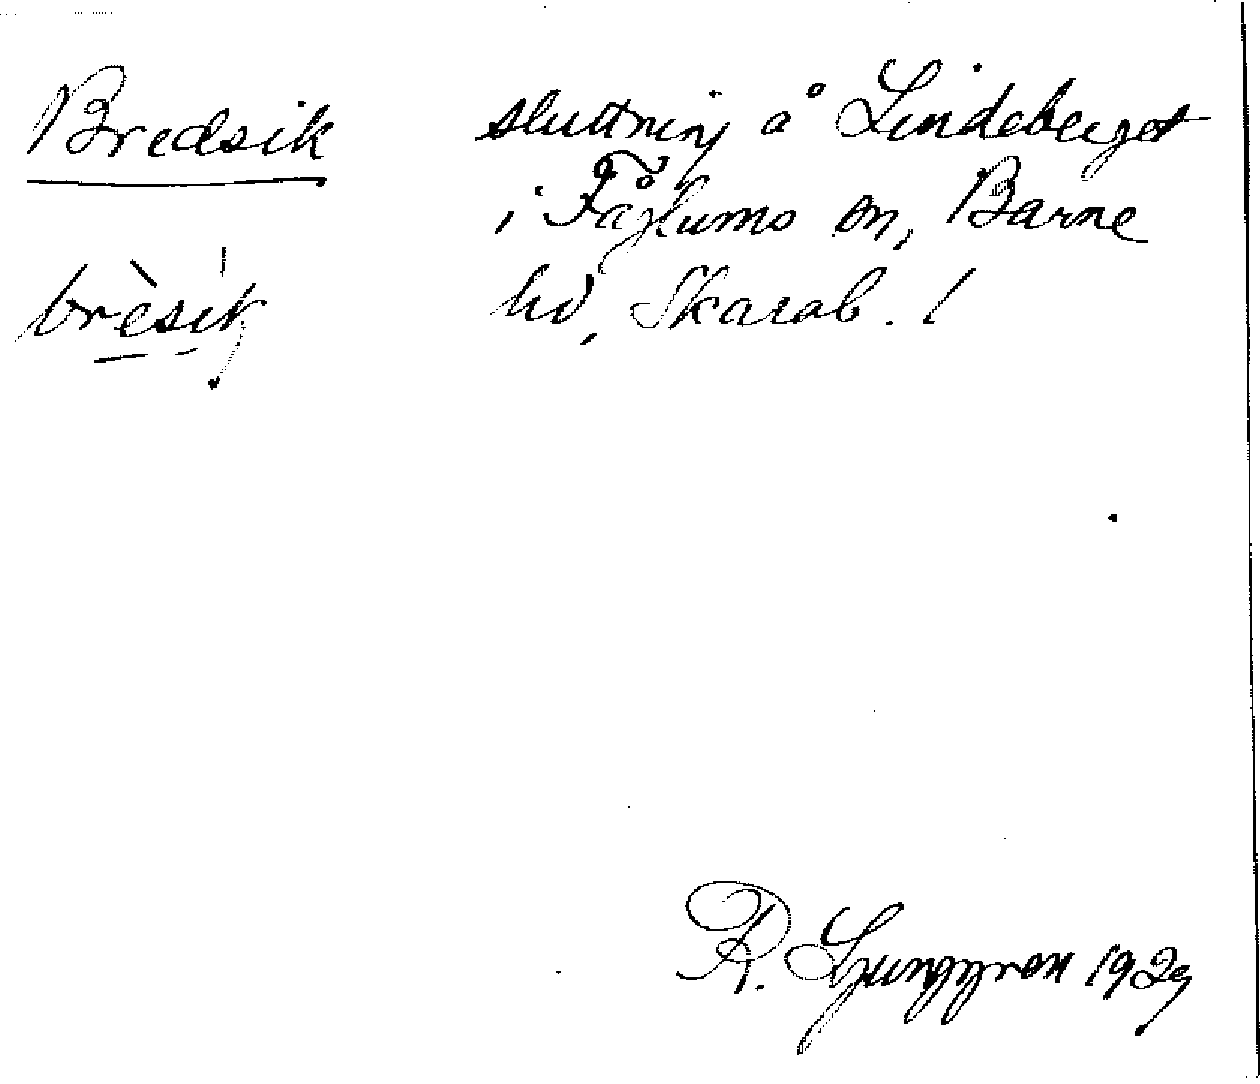 Bredsik
sluttning å Lindeberget
i Fåglums sn, Barne
hd, Skarab. l
brèsik
R. Ljunggren 1929